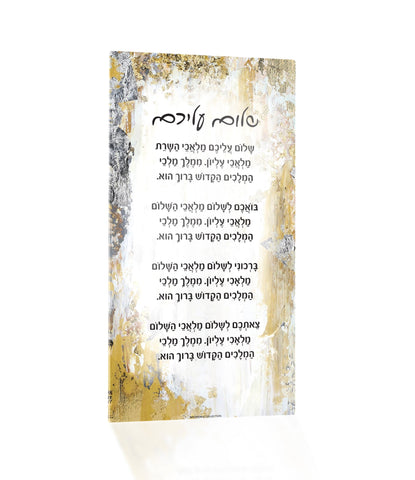 שלום עליכם
שָׁלוֹם עֲלֵיכֶם מַלְאֲכֵי הַשָּׁרֵת
מַלְאֲכֵי עֶלְיוֹן. מִמֶּלֶךְ מַלְכֵי
הַמְּלָכִים הַקָּדוֹשׁ בָּרוּךְ הוּא.
בּוֹאֲכֶם לְשָׁלוֹם מַלְאֲכֵי הַשָּׁלוֹם
מַלְאֲכֵי עֶלְיוֹן. מִמֶּלֶךְ מַלְכֵי
הַמְּלָכִים הַקָּדוֹשׁ בָּרוּךְ הוּא.
בָּרְכוּנִי לְשָׁלוֹם מַלְאֲכֵי הַשָּׁלוֹם
מַלְאֲכֵי עֶלְיוֹן. מִמֶּלֶךְ מַלְכֵי
הַמְּלָכִים הַקָּדוֹשׁ בָּרוּךְ הוּא.
צֵאתְכֶם לְשָׁלוֹם מַלְאֲכֵי הַשָּׁלוֹם
מַלְאֲכֵי עֶלְיוֹן. מִמֶּלֶךְ מַלְכֵי
הַמְּלָכִים הַקָּדוֹשׁ בָּרוּךְ הוּא.